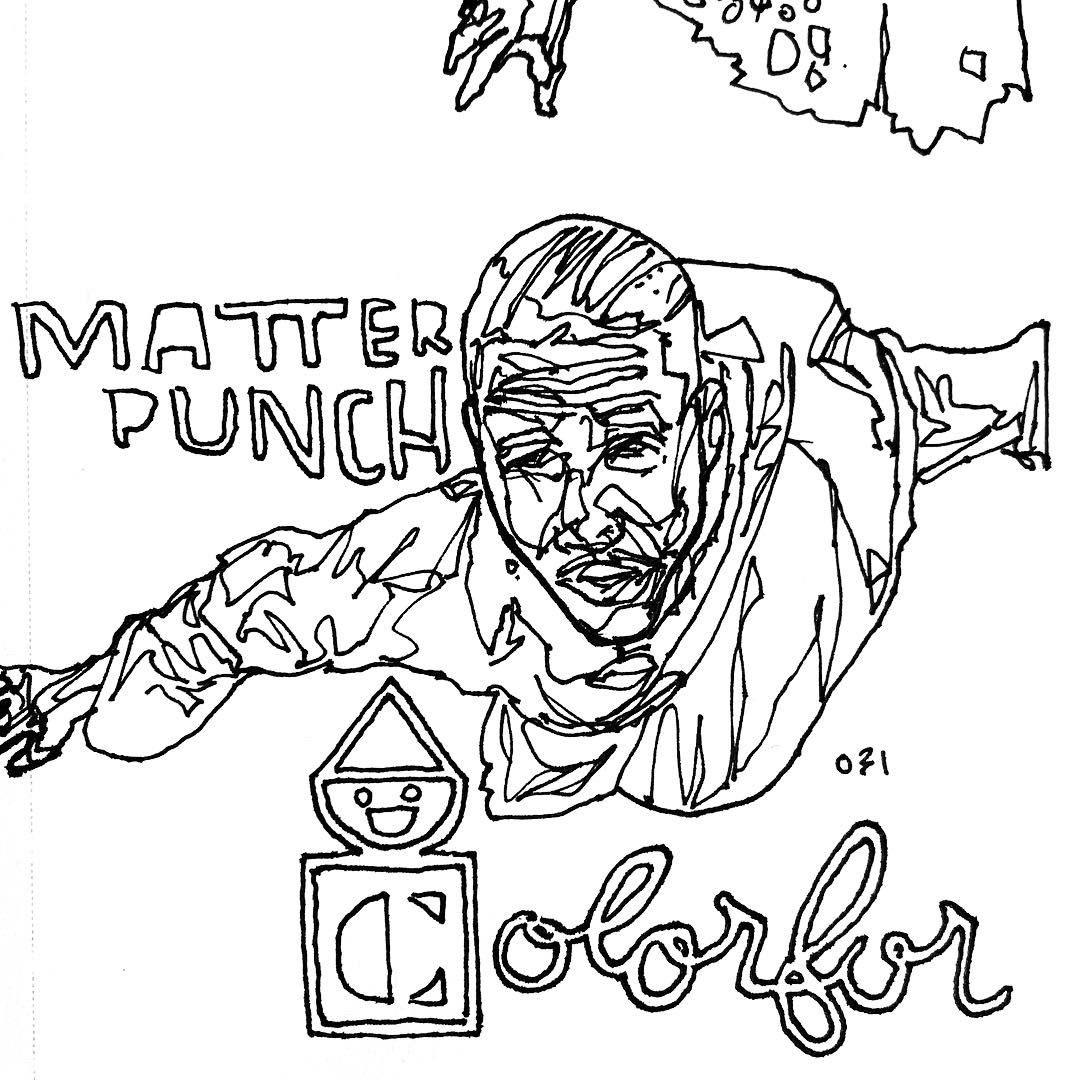 MATTER
PUNCH
071
Colorfor